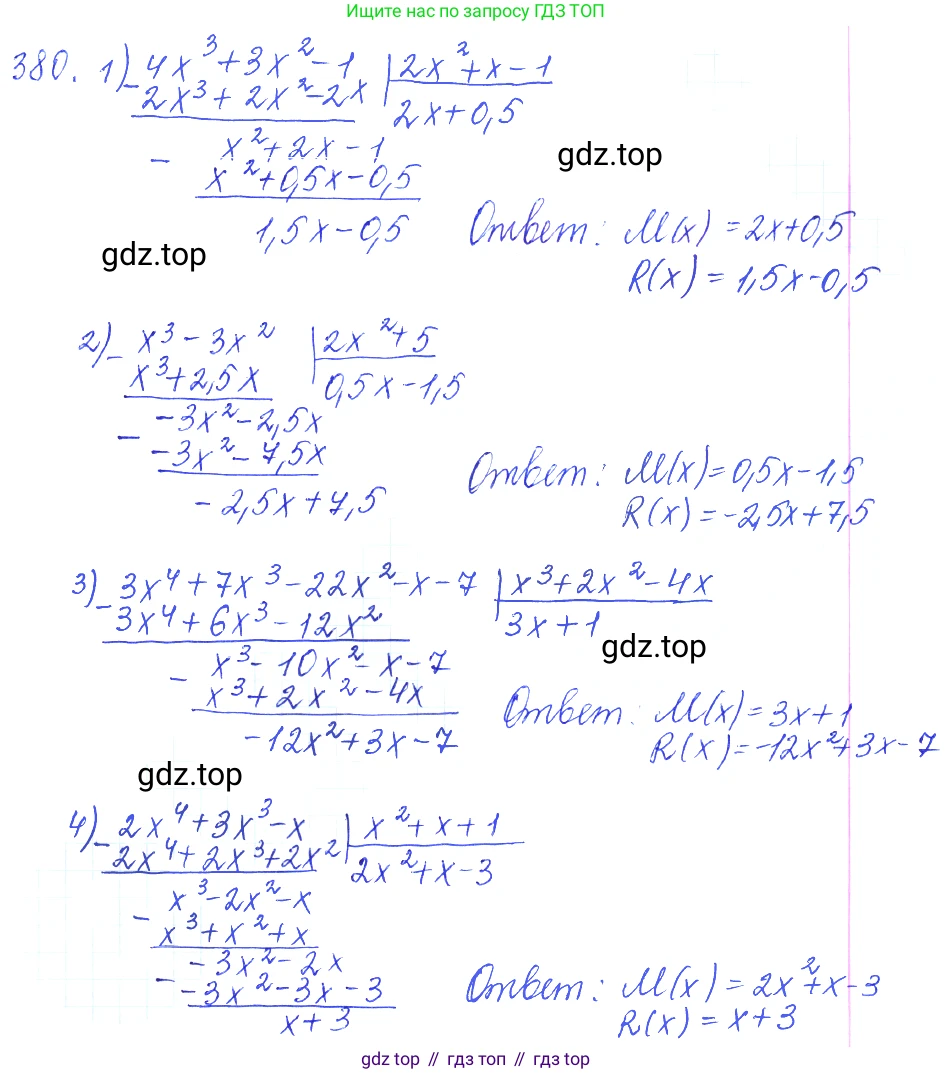 Ищите нас по запросу ГДЗ ТОП
380. 1) - 4x³ + 3x² - 1 | 2x² + x - 1
2x³ + 2x² - 2x | 2x + 0,5
- x² + 2x - 1
x² + 0,5x - 0,5
1,5x - 0,5
gdz.top
gdz.top
Ответ: M(x) = 2x + 0,5
R(x) = 1,5x - 0,5
2) - x³ - 3x² | 2x² + 5
x³ + 2,5x | 0,5x - 1,5
- -3x² - 2,5x
-3x² - 7,5x
-2,5x + 7,5
Ответ: M(x) = 0,5x - 1,5
R(x) = -2,5x + 7,5
3) - 3x⁴ + 7x³ - 22x² - x - 7 | x³ + 2x² - 4x
3x⁴ + 6x³ - 12x² | 3x + 1
- x³ - 10x² - x - 7
x³ + 2x² - 4x
-12x² + 3x - 7
gdz.top
Ответ: M(x) = 3x + 1
R(x) = -12x² + 3x - 7
gdz.top
4) - 2x⁴ + 3x³ - x | x² + x + 1
2x⁴ + 2x³ + 2x² | 2x² + x - 3
- x³ - 2x² - x
x³ + x² + x
- -3x² - 2x
-3x² - 3x - 3
x + 3
Ответ: M(x) = 2x² + x - 3
R(x) = x + 3
gdz top // гдз топ // gdz.top